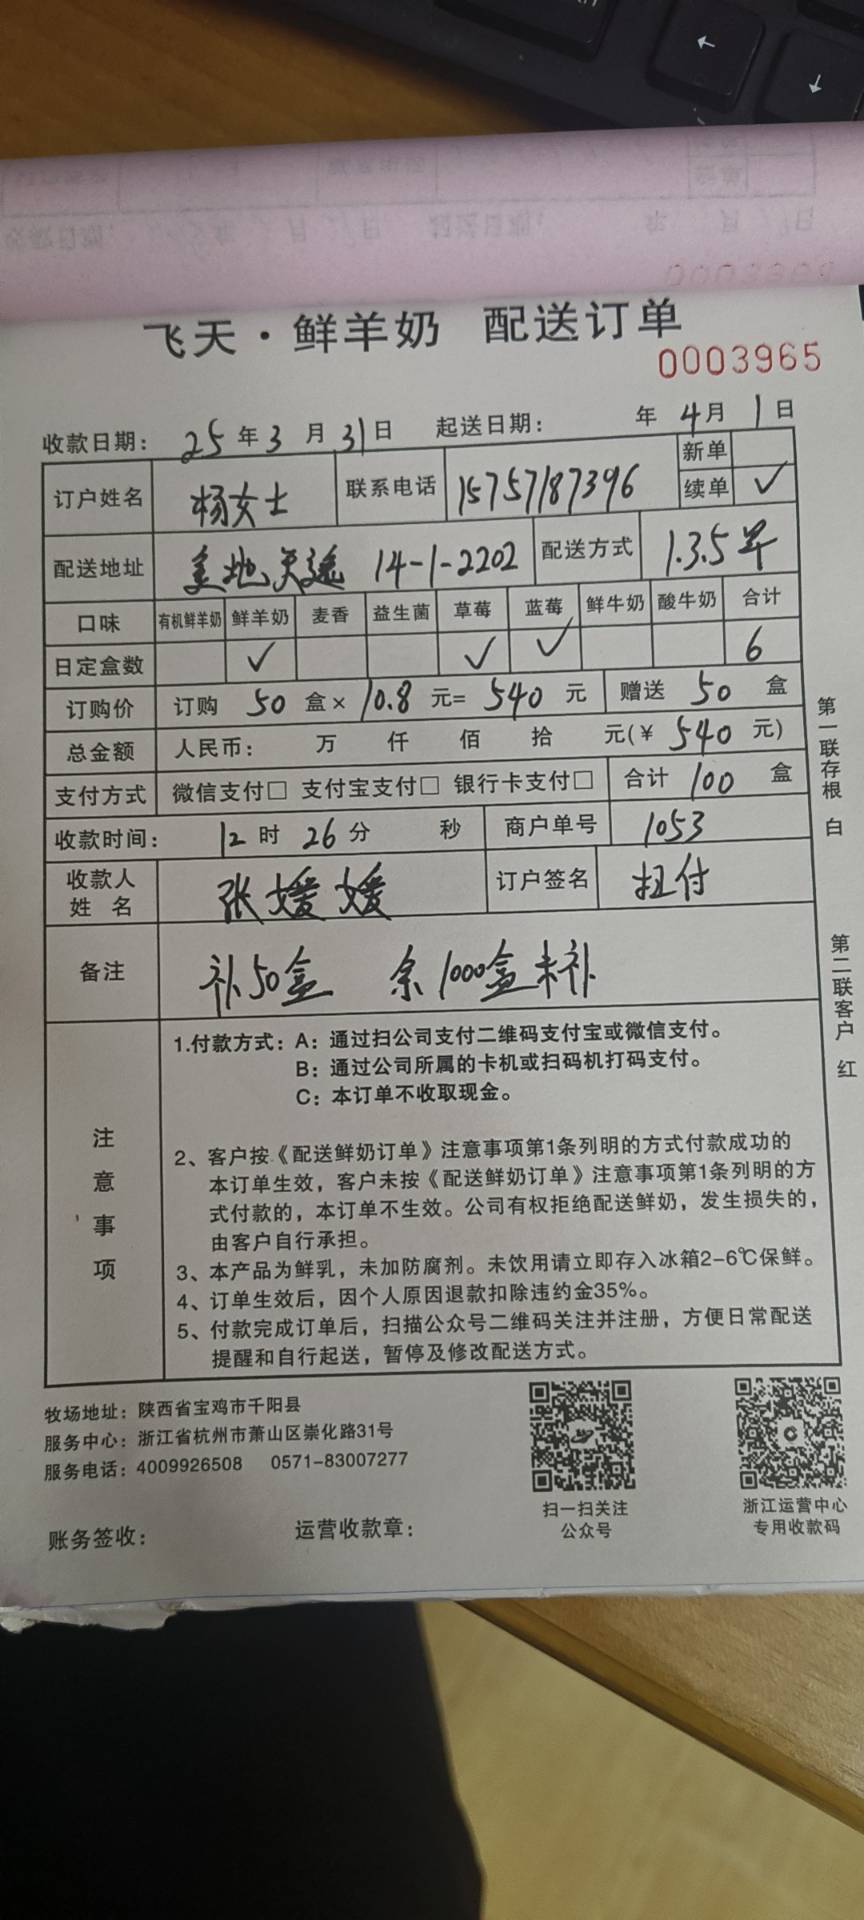 飞天·鲜羊奶 配送订单
0003965
收款日期: 25年3月31日 起送日期: 年4月1日
订户姓名 杨女士 联系电话 15757187396 新单
续单 ✓
配送地址 美地天逸 14-1-2202 配送方式 1.3.5早
口味 有机鲜羊奶 鲜羊奶 麦香 益生菌 草莓 蓝莓 鲜牛奶 酸牛奶 合计
日定盒数 ✓ ✓ ✓ 6
订购价 订购 50 盒× 10.8 元= 540 元 赠送 50 盒
总金额 人民币: 万 仟 佰 拾 元(¥ 540 元)
支付方式 微信支付□ 支付宝支付□ 银行卡支付□ 合计 100 盒
收款时间: 12时26分 秒 商户单号 1053
收款人姓名 张媛媛 订户签名 扫付
备注 补50盒 余1000盒未补
注意事项
1.付款方式: A: 通过扫公司支付二维码支付宝或微信支付。
B: 通过公司所属的卡机或扫码机打码支付。
C: 本订单不收取现金。
2、客户按《配送鲜奶订单》注意事项第1条列明的方式付款成功的
本订单生效，客户未按《配送鲜奶订单》注意事项第1条列明的方
式付款的，本订单不生效。公司有权拒绝配送鲜奶，发生损失的，
由客户自行承担。
3、本产品为鲜乳，未加防腐剂。未饮用请立即存入冰箱2-6℃保鲜。
4、订单生效后，因个人原因退款扣除违约金35%。
5、付款完成订单后，扫描公众号二维码关注并注册，方便日常配送
提醒和自行起送，暂停及修改配送方式。
第一联存根 白
第二联客户 红
牧场地址: 陕西省宝鸡市千阳县
服务中心: 浙江省杭州市萧山区崇化路31号
服务电话: 4009926508 0571-83007277
扫一扫关注
公众号
浙江运营中心
专用收款码
账务签收: 运营收款章: